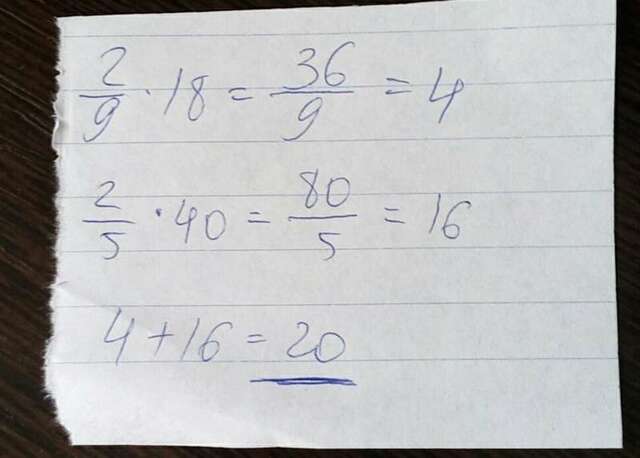 2/9 · 18 = 36/9 = 4
2/5 · 40 = 80/5 = 16
4 + 16 = 20